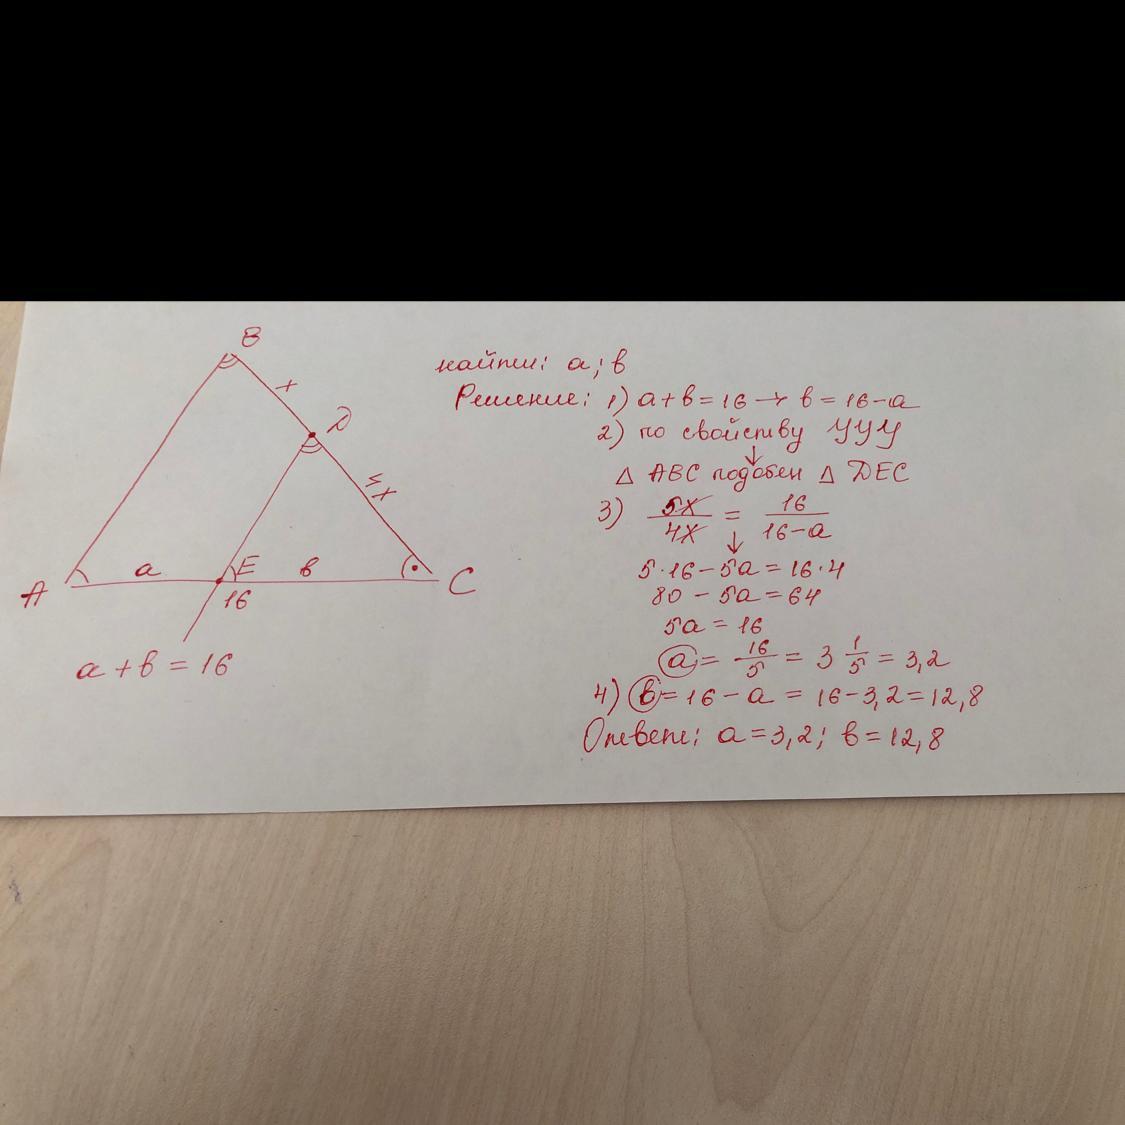 B
x
D
4x
A
a
E
в
C
16
a + в = 16
найти: a; в
Решение: 1) a + в = 16 → в = 16 - a
2) по свойству УУУ
↓
△ ABC подобен △ DEC
3) 5x/4x = 16/(16-a)
↓
5·16 - 5a = 16·4
80 - 5a = 64
5a = 16
a = 16/5 = 3 1/5 = 3,2
4) в = 16 - a = 16 - 3,2 = 12,8
Ответ: a = 3,2; в = 12,8